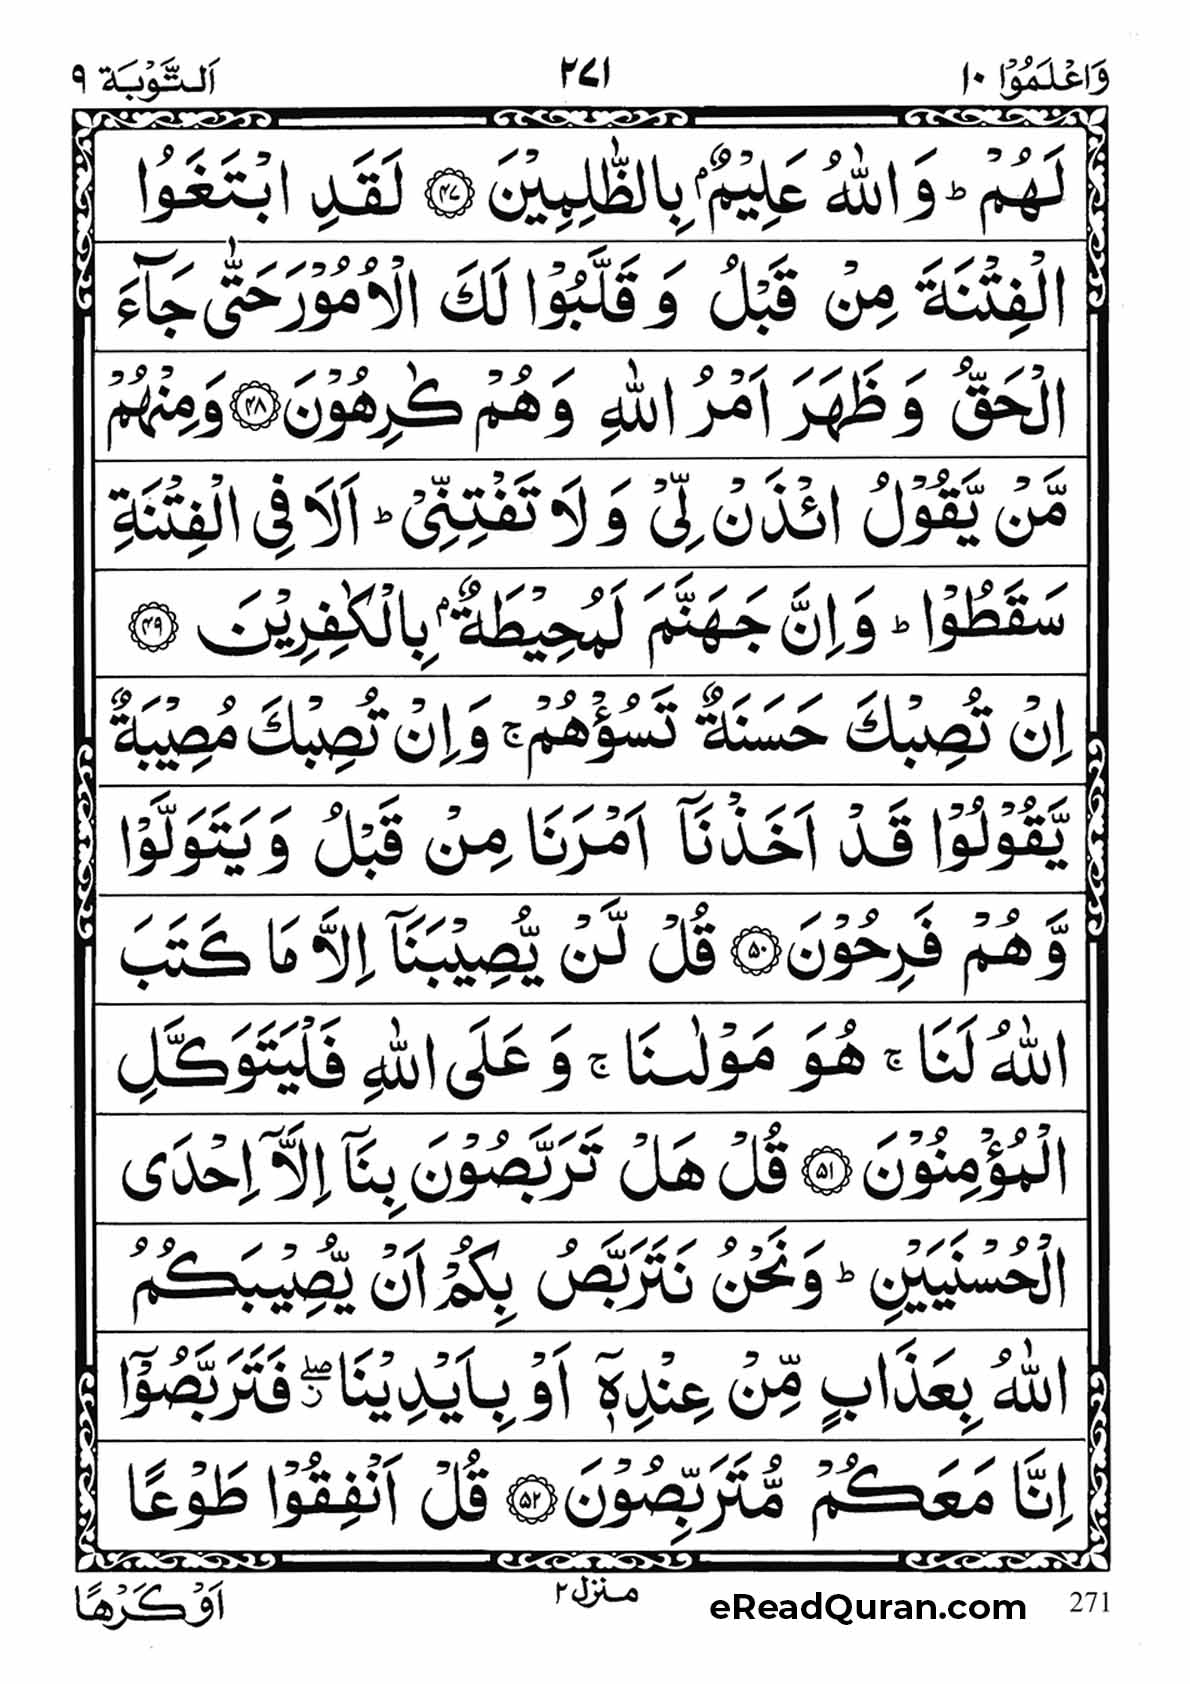 وَاعْلَمُوْا ١٠
٢٧١
اَلتَّوْبَة ٩
لَهُمْ ؕ وَاللّٰهُ عَلِيْمٌۢ بِالظّٰلِمِيْنَ ﴿۴۷﴾ لَقَدِ ابْتَغَوُا
الْفِتْنَةَ مِنْ قَبْلُ وَ قَلَّبُوْا لَكَ الْاُمُوْرَ حَتّٰى جَآءَ
الْحَقُّ وَ ظَهَرَ اَمْرُ اللّٰهِ وَ هُمْ كٰرِهُوْنَ ﴿۴۸﴾ وَ مِنْهُمْ
مَّنْ يَّقُوْلُ ائْذَنْ لِّىْ وَ لَا تَفْتِنِّىْ ؕ اَلَا فِى الْفِتْنَةِ
سَقَطُوْا ؕ وَ اِنَّ جَهَنَّمَ لَمُحِيْطَةٌۢ بِالْكٰفِرِيْنَ ﴿۴۹﴾
اِنْ تُصِبْكَ حَسَنَةٌ تَسُؤْهُمْ ۚ وَ اِنْ تُصِبْكَ مُصِيْبَةٌ
يَّقُوْلُوْا قَدْ اَخَذْنَاۤ اَمْرَنَا مِنْ قَبْلُ وَ يَتَوَلَّوْا
وَّ هُمْ فَرِحُوْنَ ﴿۵۰﴾ قُلْ لَّنْ يُّصِيْبَنَاۤ اِلَّا مَا كَتَبَ
اللّٰهُ لَنَا ۚ هُوَ مَوْلٰىنَا ۚ وَ عَلَى اللّٰهِ فَلْيَتَوَكَّلِ
الْمُؤْمِنُوْنَ ﴿۵۱﴾ قُلْ هَلْ تَرَبَّصُوْنَ بِنَاۤ اِلَّاۤ اِحْدَى
الْحُسْنَيَيْنِ ؕ وَ نَحْنُ نَتَرَبَّصُ بِكُمْ اَنْ يُّصِيْبَكُمُ
اللّٰهُ بِعَذَابٍ مِّنْ عِنْدِهٖۤ اَوْ بِاَيْدِيْنَا ۖ فَتَرَبَّصُوْۤا
اِنَّا مَعَكُمْ مُّتَرَبِّصُوْنَ ﴿۵۲﴾ قُلْ اَنْفِقُوْا طَوْعًا
اَوْ كَرْهًا
منزل ٢
eReadQuran.com
271